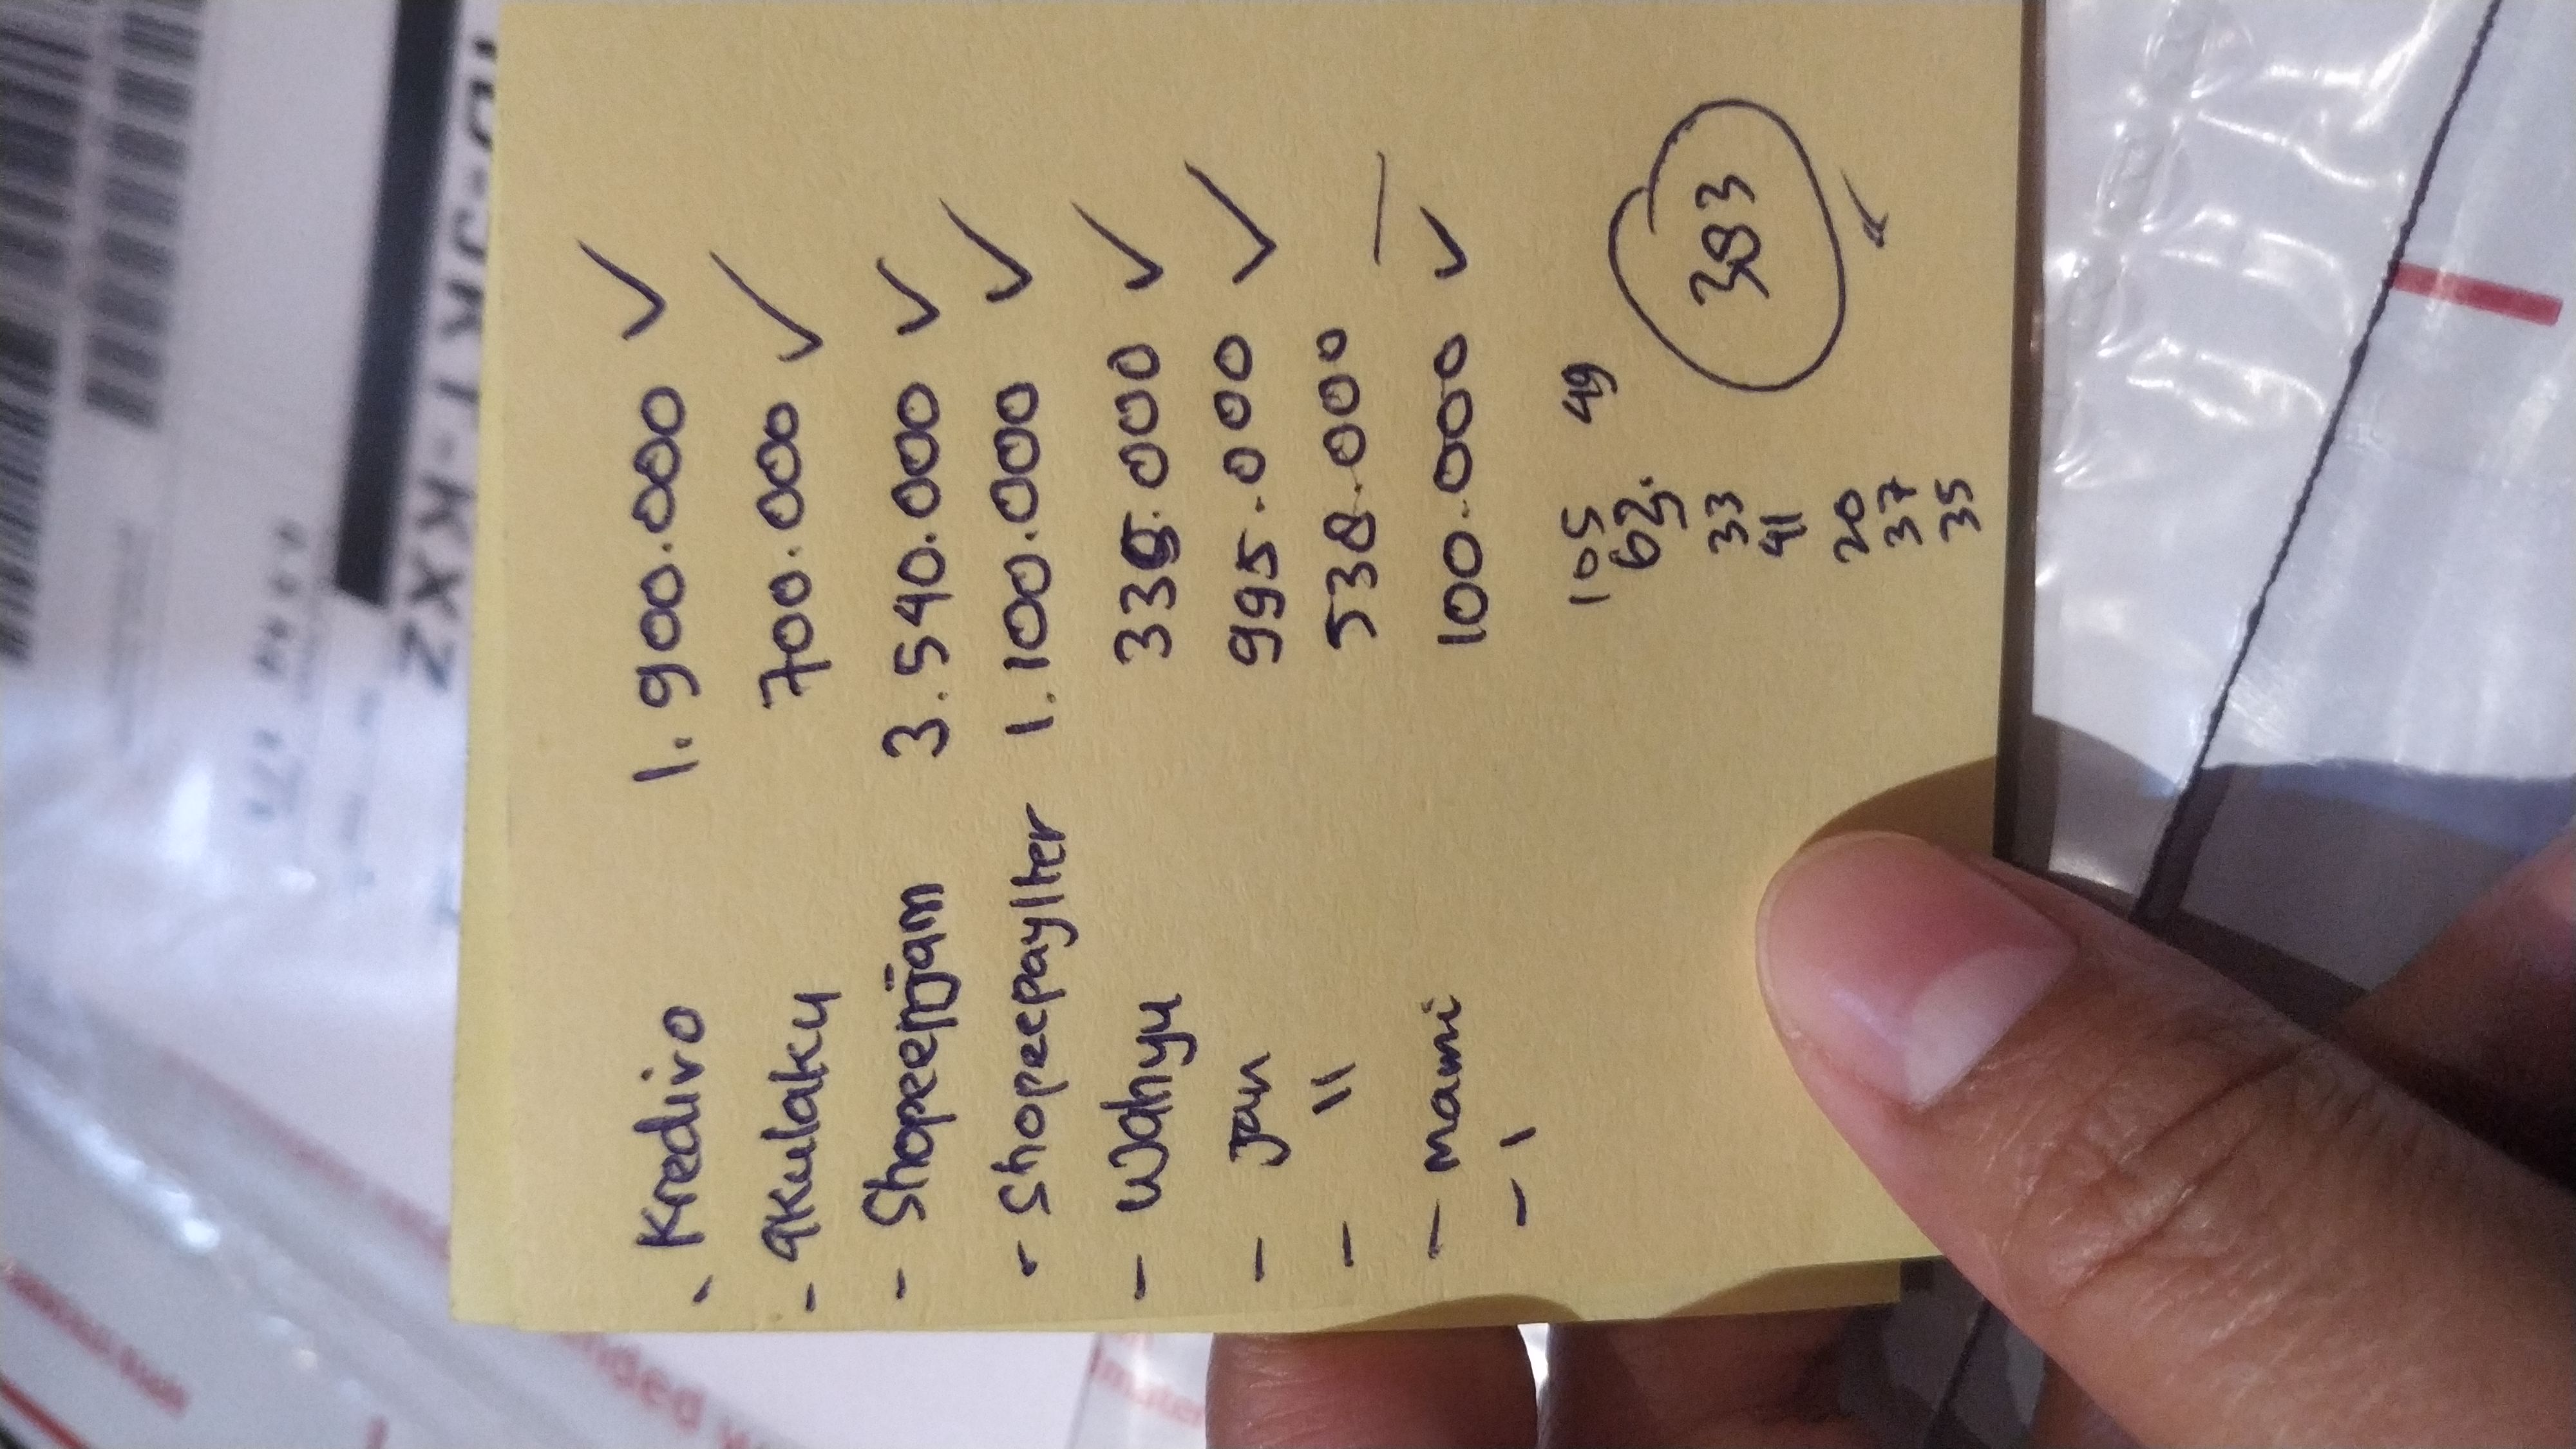 - Kredivo 1.900.000 ✓
- akulaku 700.000 ✓
- Shopeepjam 3.540.000 ✓
- Shopeepaylter 1.100.000 ✓
- Wahyu 000 ✓
- Jan 995.000 ✓
- " 538.000 —
- mami 100.000 ✓
- 1
105 49
62.
33
41
20
37
35
383
JKT-KXZ